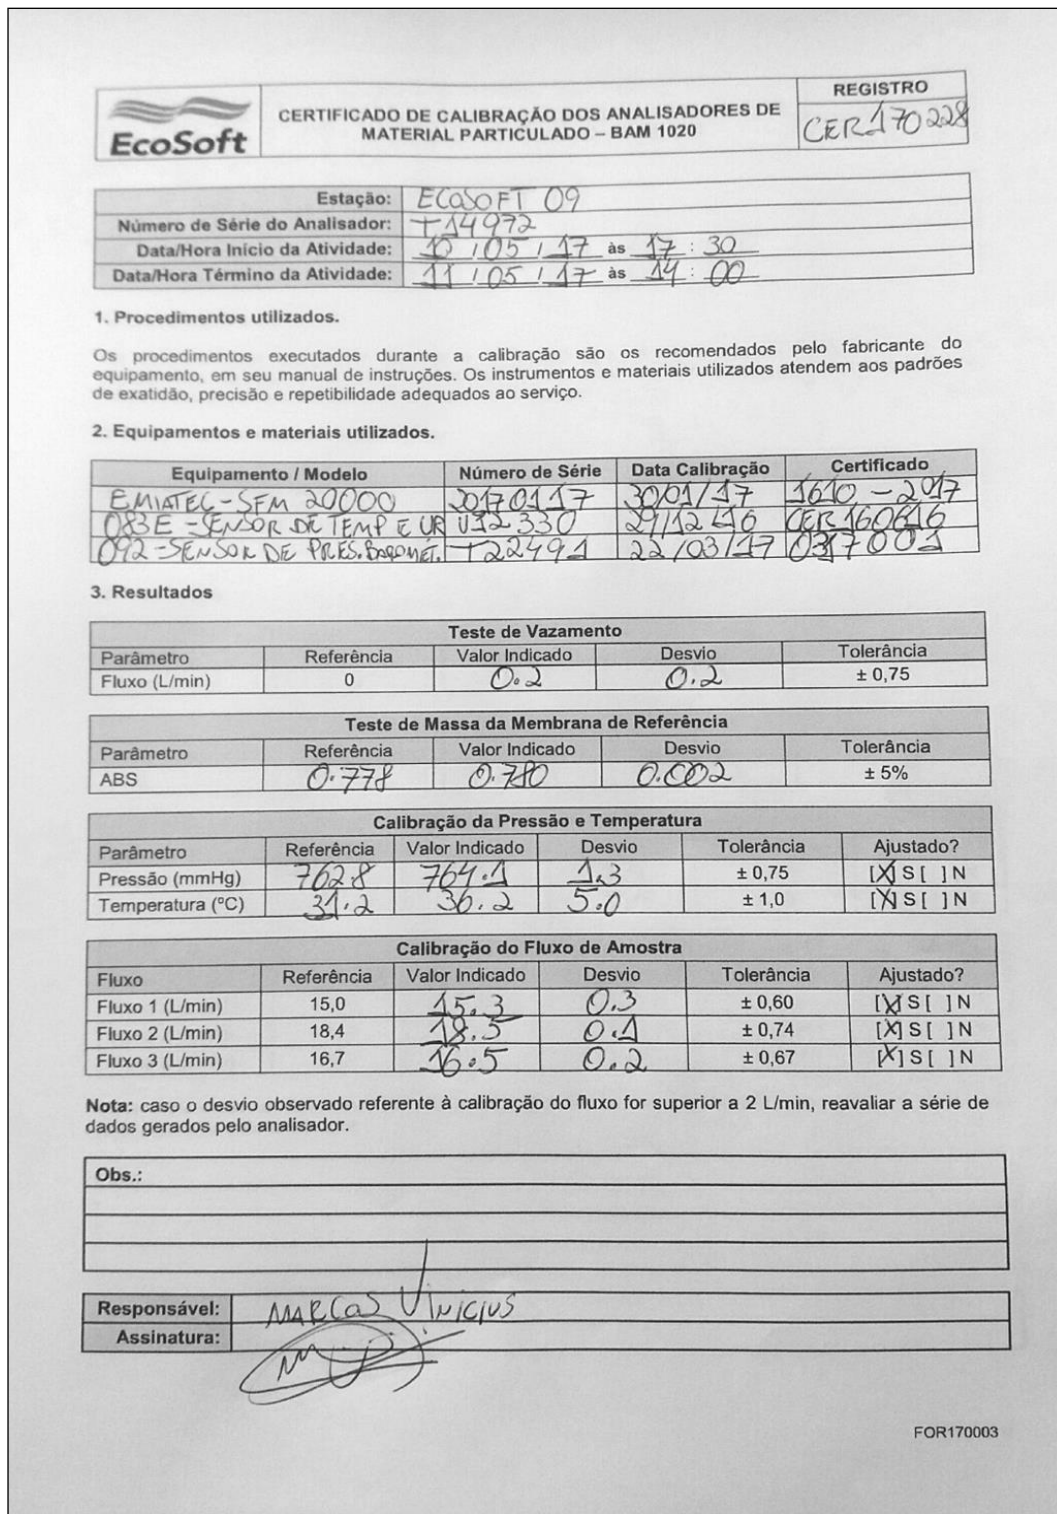 EcoSoft
CERTIFICADO DE CALIBRAÇÃO DOS ANALISADORES DE
MATERIAL PARTICULADO – BAM 1020
REGISTRO
CER170228
Estação: ECOSOFT 09
Número de Série do Analisador: T14972
Data/Hora Início da Atividade: 10/05/17 às 17:30
Data/Hora Término da Atividade: 11/05/17 às 14:00
1. Procedimentos utilizados.
Os procedimentos executados durante a calibração são os recomendados pelo fabricante do
equipamento, em seu manual de instruções. Os instrumentos e materiais utilizados atendem aos padrões
de exatidão, precisão e repetibilidade adequados ao serviço.
2. Equipamentos e materiais utilizados.
Equipamento / Modelo Número de Série Data Calibração Certificado
EMIATEC-SFM 20000 20170117 30/01/17 1610-2017
083E-SENSOR DE TEMP E UR U12330 29/12/16 CER160616
092-SENSOR DE PRES. BAROMÉT. T22491 22/03/17 0317001
3. Resultados
Teste de Vazamento
Parâmetro Referência Valor Indicado Desvio Tolerância
Fluxo (L/min) 0 0.2 0.2 ± 0,75
Teste de Massa da Membrana de Referência
Parâmetro Referência Valor Indicado Desvio Tolerância
ABS 0.778 0.780 0.002 ± 5%
Calibração da Pressão e Temperatura
Parâmetro Referência Valor Indicado Desvio Tolerância Ajustado?
Pressão (mmHg) 762.8 764.1 1.3 ± 0,75 [X] S [ ] N
Temperatura (ºC) 31.2 36.2 5.0 ± 1,0 [X] S [ ] N
Calibração do Fluxo de Amostra
Fluxo Referência Valor Indicado Desvio Tolerância Ajustado?
Fluxo 1 (L/min) 15,0 15.3 0.3 ± 0,60 [X] S [ ] N
Fluxo 2 (L/min) 18,4 18.5 0.1 ± 0,74 [X] S [ ] N
Fluxo 3 (L/min) 16,7 16.5 0.2 ± 0,67 [X] S [ ] N
Nota: caso o desvio observado referente à calibração do fluxo for superior a 2 L/min, reavaliar a série de
dados gerados pelo analisador.
Obs.:
Responsável: MARCOS VINICIUS
Assinatura:
FOR170003